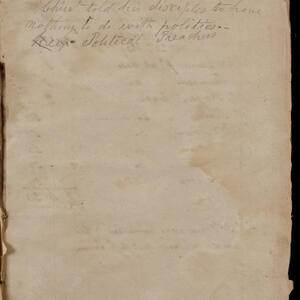 Christ told his disciples to have
nothing to do with politics.—
Political Preachers